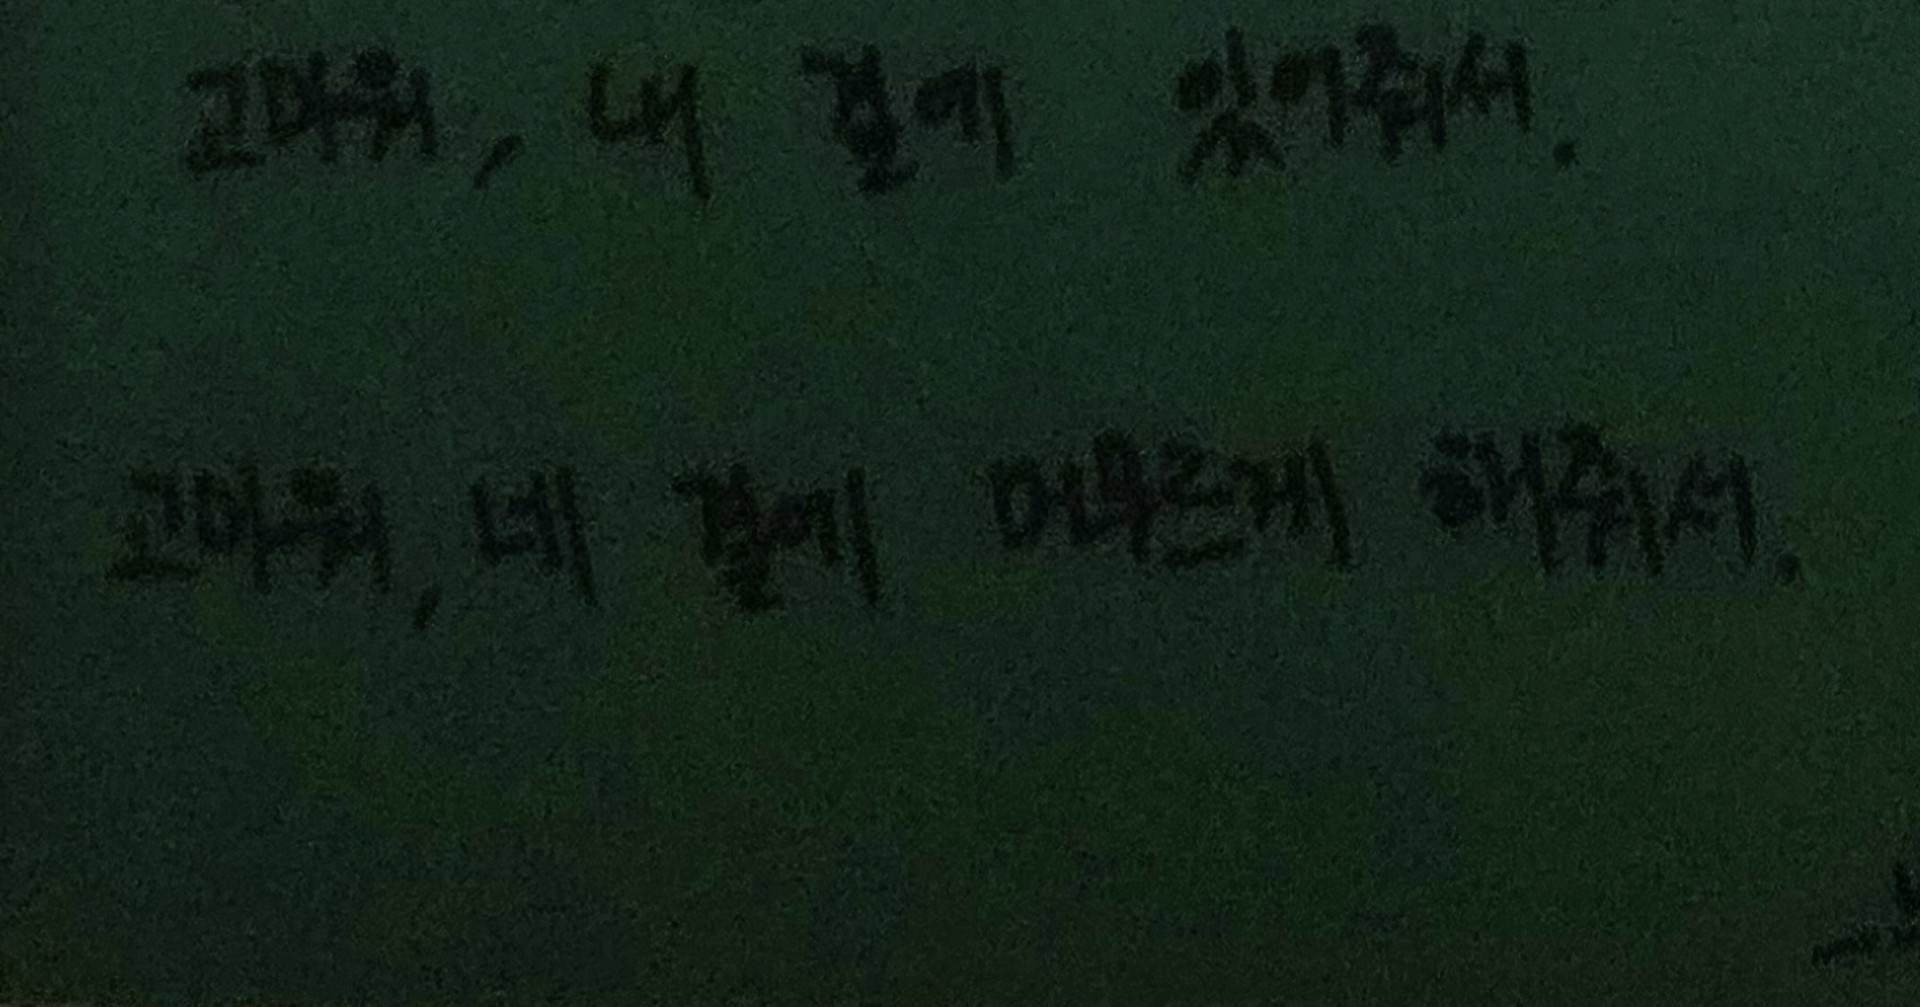 고마워, 내 곁에 있어줘서.
고마워, 네 곁에 머무르게 해줘서.